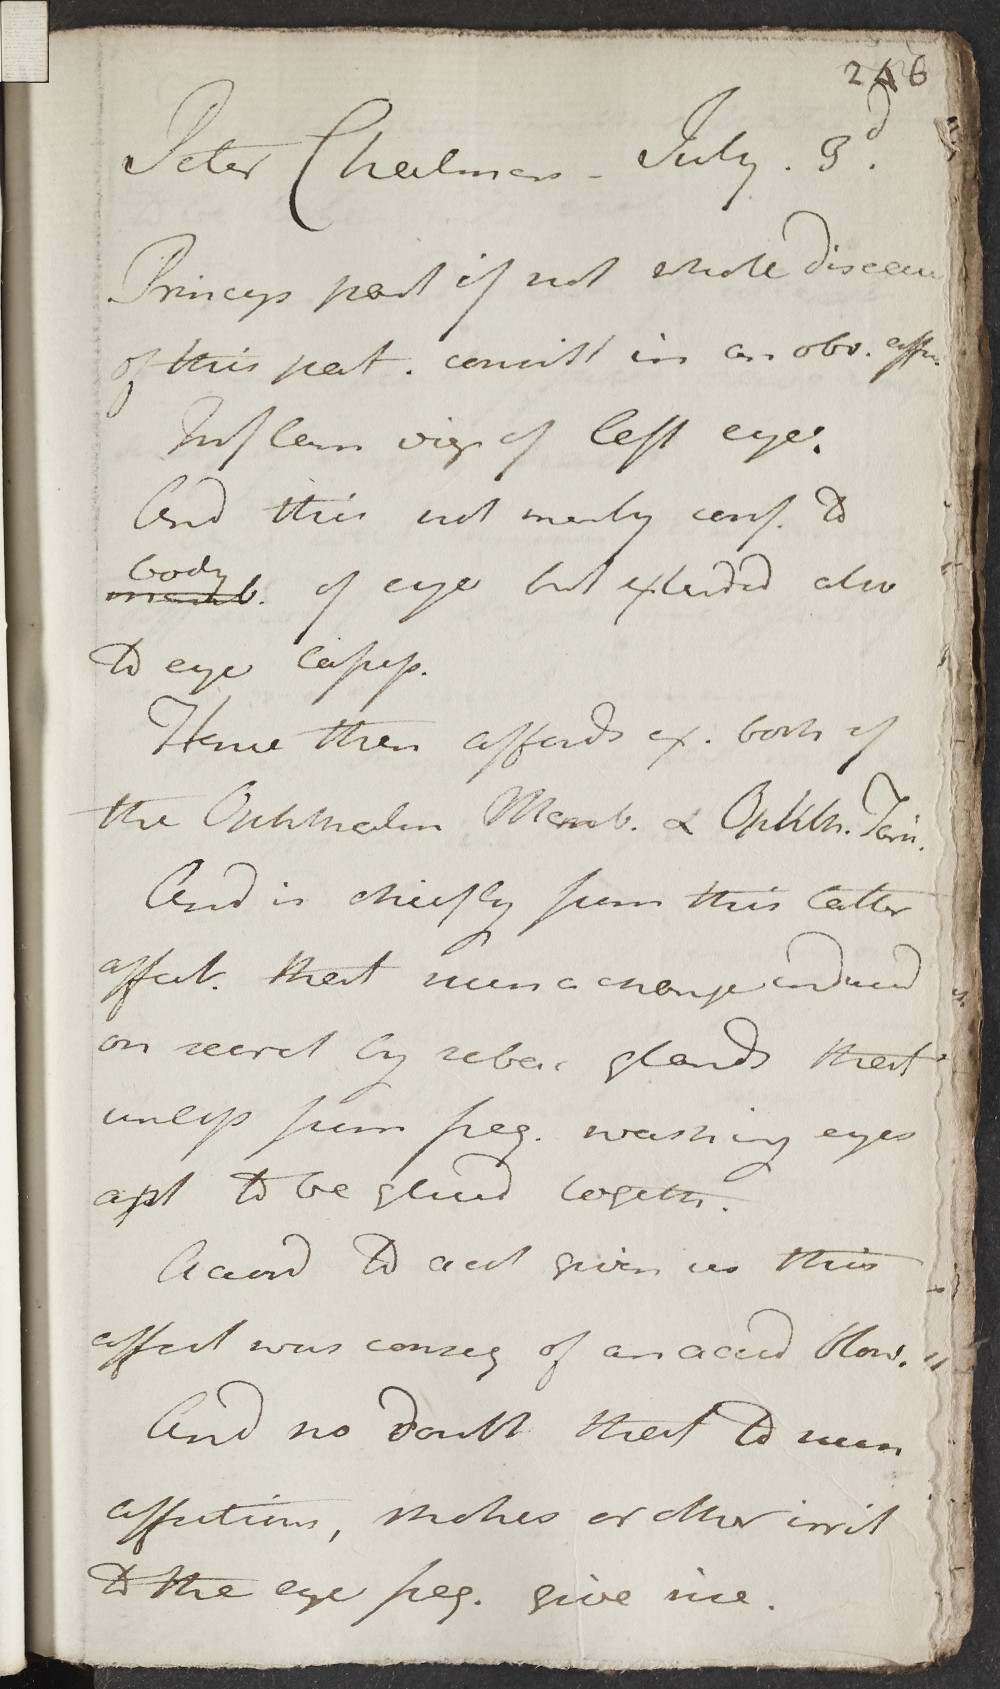 246
Peter Chalmers - July. 3d.
Princip part if not whole disease
of this pat. consist in an obv. affn.
Inflam viz of left eye.
And this not merely conf. to
body memb. of eye but extended also
to eye
Hence then affords ex. both of
the Ophthalm Memb. & Ophth. Tars.
And is chiefly from this latter
affect. that such a change induced
on secret by sebac glands that
unless from freq. washing eyes
apt to be glued togeth.
Accord to acct given us this
affect was conseq of an accid blow.
And no doubt that to such
affections, strokes or other irrit
to the eye freq. give rise.